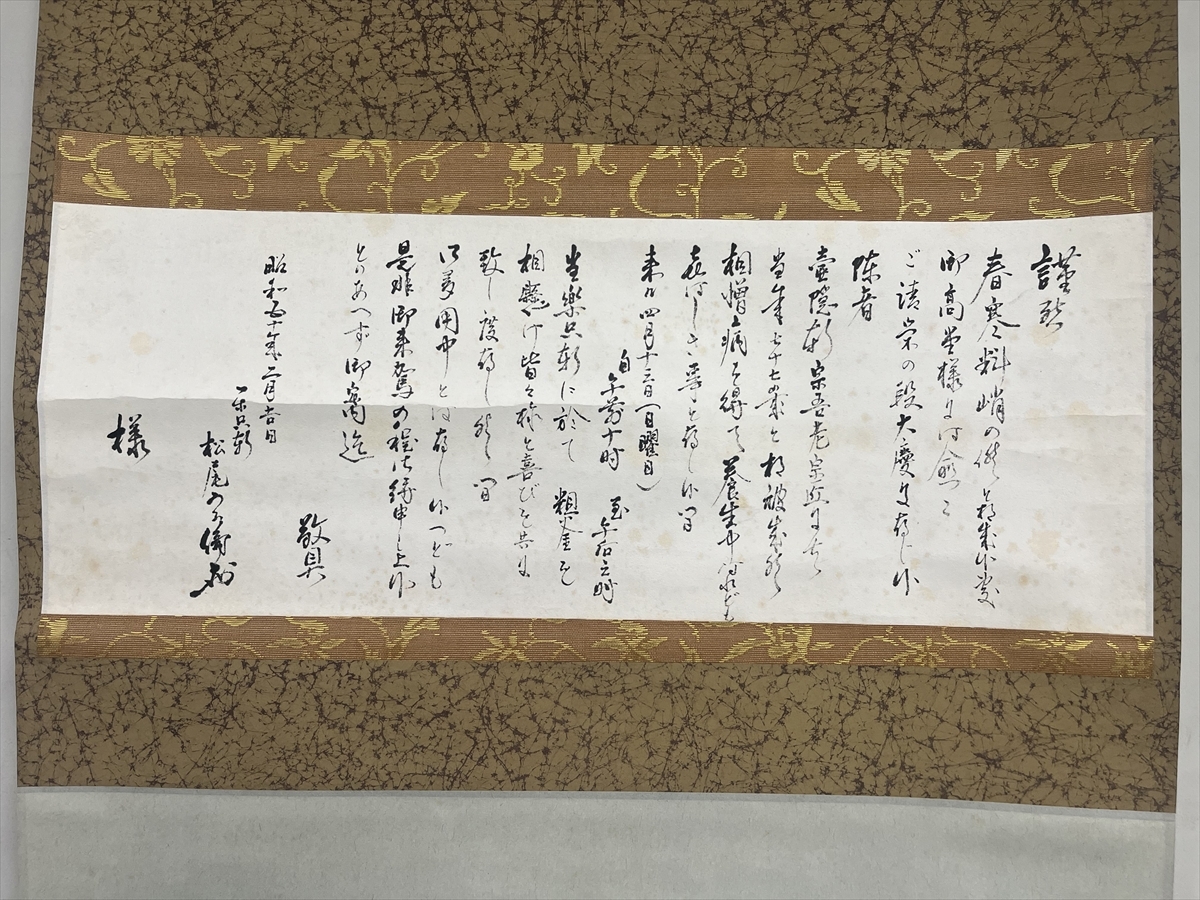 謹啓
春寒料峭の候と相成候処
御高堂様には愈々
ご清栄の段大慶に存じ候
陳者
壺隠軒宗吾老宗匠には
当年七十七歳と相成
相憎と病を得て養生中なれども
喜ばしき事と存じ候間
来る四月十三日(日曜日)
自午前十時 至午后三時
当楽只軒に於て 粗釜を
相懸け皆々様と喜びを共に
致し度存じ 間
御多用中とは存じ候へども
是非御来駕の程 申し上候
とりあへず御案迄
敬具
昭和五十年二月吉日
楽只軒
松尾
様